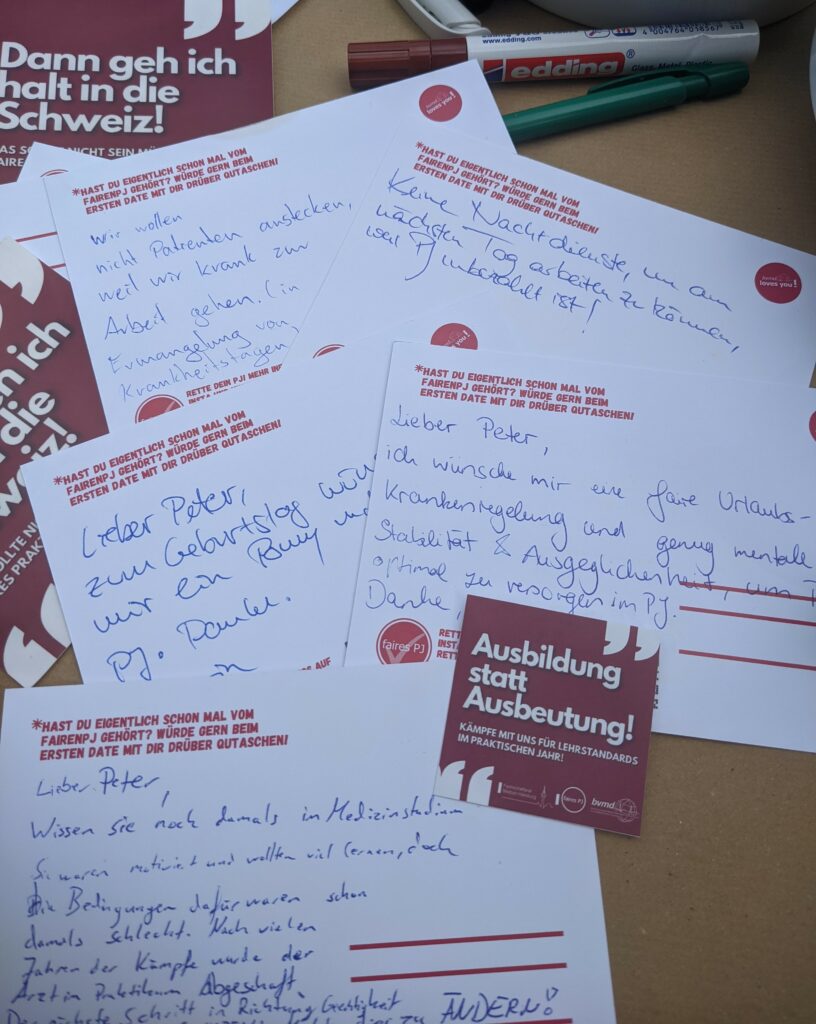 Dann geh ich
halt in die
Schweiz!
NICHT SEIN
edding®
www.edding.com
Glass, Metal, Plastic
4 004764 018567
bvmd
loves you!
*HAST DU EIGENTLICH SCHON MAL VOM
FAIRENPJ GEHÖRT? WÜRDE GERN BEIM
ERSTEN DATE MIT DIR DRÜBER QUTASCHEN!
wir wollen
nicht Patienten anstecken,
weil wir krank zur
Arbeit gehen. (in
Ermangelung von
Krankheitstagen)
RETTE DEIN PJ! MEHR
*HAST DU EIGENTLICH SCHON MAL VOM
FAIRENPJ GEHÖRT? WÜRDE GERN BEIM
ERSTEN DATE MIT DIR DRÜBER QUTASCHEN!
Keine Nachtdienste, um am
nächsten Tag arbeiten zu können,
weil PJ unbezahlt ist!
bvmd
loves you!
loves you!
*HAST DU EIGENTLICH SCHON MAL VOM
FAIRENPJ GEHÖRT? WÜRDE GERN BEIM
ERSTEN DATE MIT DIR DRÜBER QUTASCHEN!
Lieber Peter,
zum Geburtstag
mir ein
PJ. Danke.
AUF
*HAST DU EIGENTLICH SCHON MAL VOM
FAIRENPJ GEHÖRT? WÜRDE GERN BEIM
ERSTEN DATE MIT DIR DRÜBER QUTASCHEN!
Lieber Peter,
ich wünsche mir eine faire Urlaubs-
Krankenregelung und genug mentale
Stabilität & Ausgeglichenheit, um
optimal zu versorgen im PJ.
Danke,
faires PJ
Ausbildung
statt
Ausbeutung!
KÄMPFE MIT UNS FÜR LEHRSTANDARDS
IM PRAKTISCHEN JAHR!
faires PJ
bvmd
*HAST DU EIGENTLICH SCHON MAL VOM
FAIRENPJ GEHÖRT? WÜRDE GERN BEIM
ERSTEN DATE MIT DIR DRÜBER QUTASCHEN!
Lieber Peter,
Wissen sie noch damals im Medizinstudium
Sie waren motiviert und wollten viel lernen, doch
die Bedingungen dafür waren schon
damals schlecht. Nach vielen
Jahren der Kämpfe wurde der
Arzt im Praktikum Abgeschaft.
Der nächste Schritt in Richtung Gerechtigkeit
zu ÄNDERN!